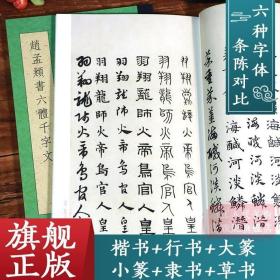 六种字体
条陈对比
趙孟頫書六體千字文
羽翔龍師火帝鳥官人皇
羽翔龍師火帝鳥官人皇
羽翔龍師火帝鳥官人皇
羽翔龍師火帝鳥官人皇
菜重芥薑海鹹河淡鱗
海鹹河淡鱗潛
旗舰
正版
楷书+行书+大篆
小篆+隶书+草书